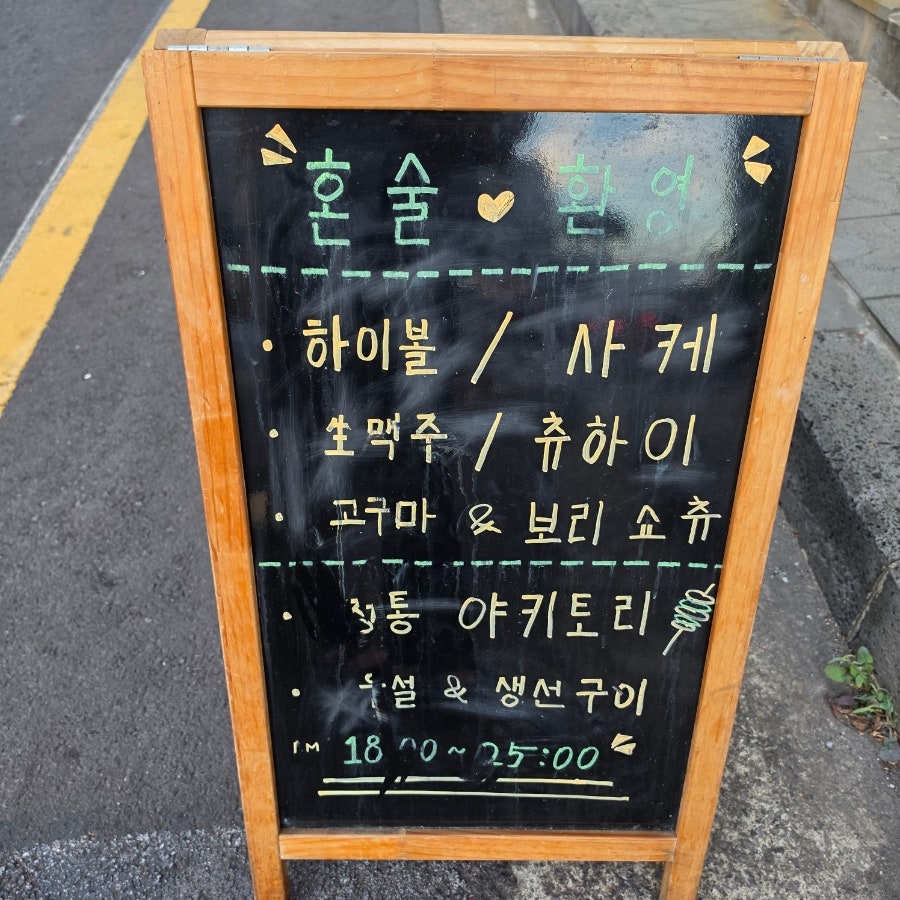 혼술 환영
하이볼 / 사케
生맥주 / 츄하이
고구마 & 보리 쇼츄
통 야키토리
& 생선구이
~ 25:00